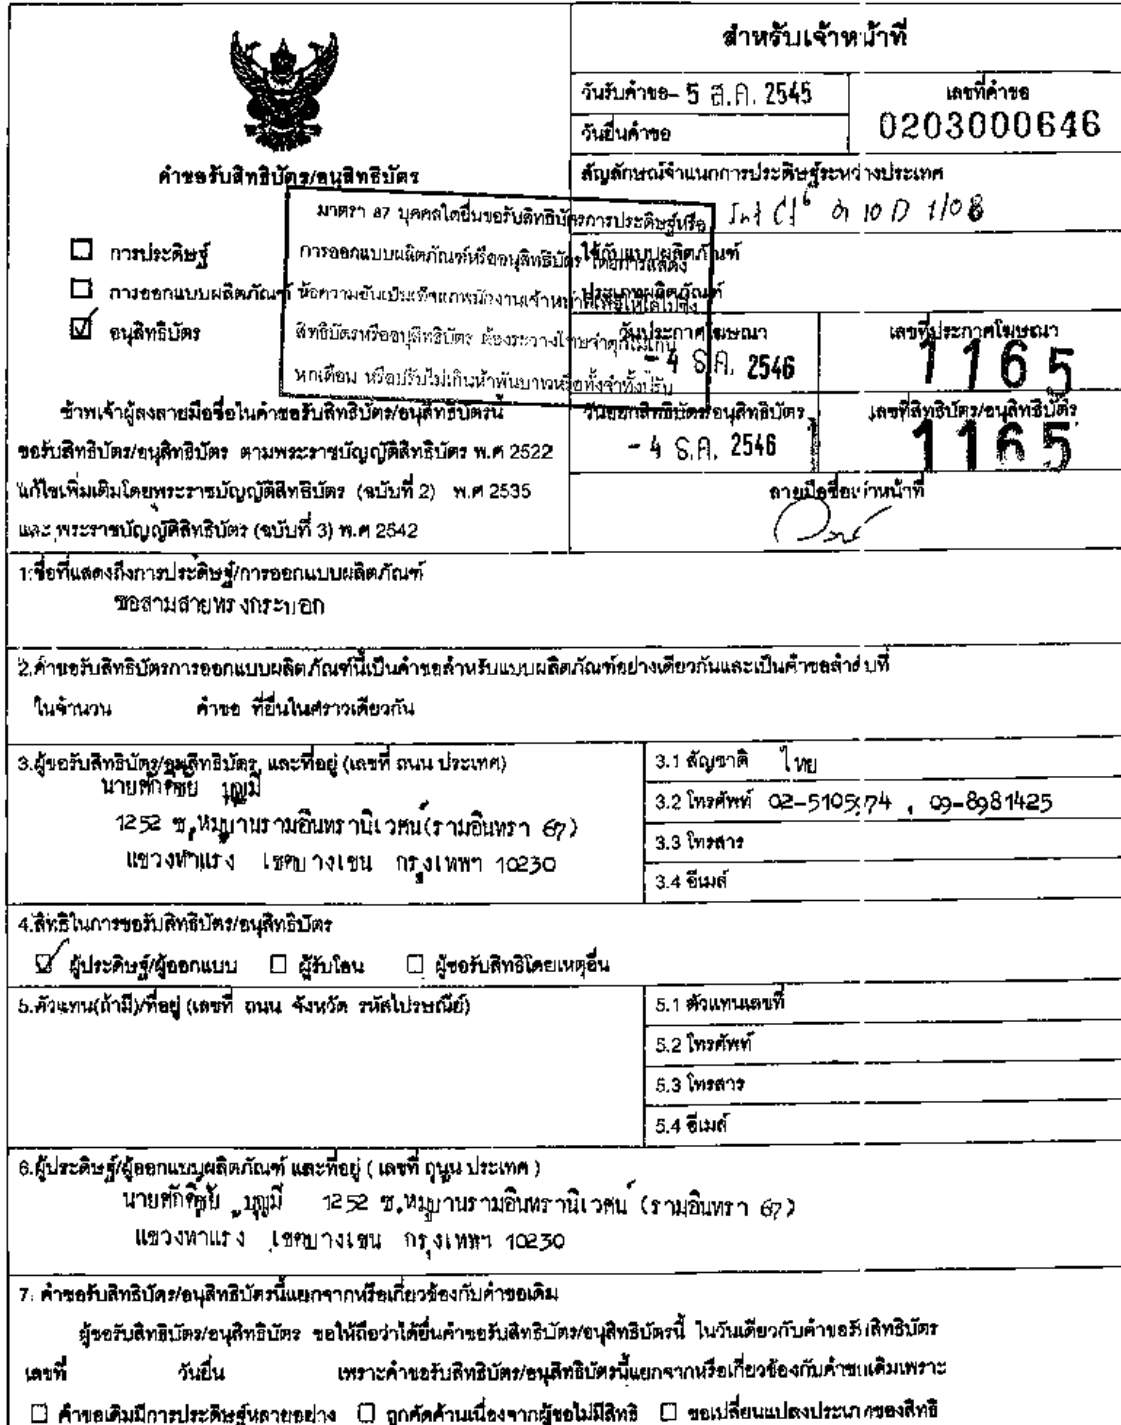 สำหรับเจ้าหน้าที่
วันรับคำขอ - 5 ส.ค. 2545
เลขที่คำขอ
0203000646
วันยื่นคำขอ
สัญลักษณ์จำแนกการประดิษฐ์ระหว่างประเทศ
Int Cl6 G 10 D 1/08
คำขอรับสิทธิบัตร/อนุสิทธิบัตร
☐ การประดิษฐ์
☐ การออกแบบผลิตภัณฑ์
☑ อนุสิทธิบัตร
มาตรา 87 บุคคลใดยื่นขอรับสิทธิบัตรการประดิษฐ์หรือ
การออกแบบผลิตภัณฑ์หรืออนุสิทธิบัตร โดยการแสดง
ข้อความอันเป็นเท็จแก่พนักงานเจ้าหน้าที่เพื่อให้ได้ไปซึ่ง
สิทธิบัตรหรืออนุสิทธิบัตร ต้องระวางโทษจำคุกไม่เกิน
หกเดือน หรือปรับไม่เกินห้าพันบาทหรือทั้งจำทั้งปรับ
ใช้กับแบบผลิตภัณฑ์
ประเภทผลิตภัณฑ์
วันประกาศโฆษณา
- 4 ธ.ค. 2546
เลขที่ประกาศโฆษณา
1165
วันออกสิทธิบัตร/อนุสิทธิบัตร
- 4 ธ.ค. 2546
เลขที่สิทธิบัตร/อนุสิทธิบัตร
1165
ลายมือชื่อเจ้าหน้าที่
ข้าพเจ้าผู้ลงลายมือชื่อในคำขอรับสิทธิบัตร/อนุสิทธิบัตรนี้
ขอรับสิทธิบัตร/อนุสิทธิบัตร ตามพระราชบัญญัติสิทธิบัตร พ.ศ 2522
แก้ไขเพิ่มเติมโดยพระราชบัญญัติสิทธิบัตร (ฉบับที่ 2) พ.ศ 2535
และ พระราชบัญญัติสิทธิบัตร (ฉบับที่ 3) พ.ศ 2542
1.ชื่อที่แสดงถึงการประดิษฐ์/การออกแบบผลิตภัณฑ์
ซอสามสายทรงกระบอก
2.คำขอรับสิทธิบัตรการออกแบบผลิตภัณฑ์นี้เป็นคำขอสำหรับแบบผลิตภัณฑ์อย่างเดียวกันและเป็นคำขอลำดับที่
ในจำนวน คำขอ ที่ยื่นในคราวเดียวกัน
3.ผู้ขอรับสิทธิบัตร/อนุสิทธิบัตร และที่อยู่ (เลขที่ ถนน ประเทศ)
นายศักดิ์ชัย บุญมี
1252 ซ.หมู่บานรามอินทรานิเวศน์(รามอินทรา 67)
แขวงท่าแร้ง เขตบางเขน กรุงเทพฯ 10230
3.1 สัญชาติ ไทย
3.2 โทรศัพท์ 02-5105174 , 09-8981425
3.3 โทรสาร
3.4 อีเมล์
4.สิทธิในการขอรับสิทธิบัตร/อนุสิทธิบัตร
☑ ผู้ประดิษฐ์/ผู้ออกแบบ ☐ ผู้รับโอน ☐ ผู้ขอรับสิทธิโดยเหตุอื่น
5.ตัวแทน(ถ้ามี)/ที่อยู่ (เลขที่ ถนน จังหวัด รหัสไปรษณีย์)
5.1 ตัวแทนเลขที่
5.2 โทรศัพท์
5.3 โทรสาร
5.4 อีเมล์
6.ผู้ประดิษฐ์/ผู้ออกแบบผลิตภัณฑ์ และที่อยู่ ( เลขที่ ถนน ประเทศ )
นายศักดิ์ชัย บุญมี 1252 ซ.หมู่บานรามอินทรานิเวศน์ (รามอินทรา 67)
แขวงทาแรง เขตบางเขน กรุงเทพฯ 10230
7. คำขอรับสิทธิบัตร/อนุสิทธิบัตรนี้แยกจากหรือเกี่ยวข้องกับคำขอเดิม
ผู้ขอรับสิทธิบัตร/อนุสิทธิบัตร ขอให้ถือว่าได้ยื่นคำขอรับสิทธิบัตร/อนุสิทธิบัตรนี้ ในวันเดียวกับคำขอรับสิทธิบัตร
เลขที่ วันยื่น เพราะคำขอรับสิทธิบัตร/อนุสิทธิบัตรนี้แยกจากหรือเกี่ยวข้องกับคำขอเดิมเพราะ
☐ คำขอเดิมมีการประดิษฐ์หลายอย่าง ☐ ถูกคัดค้านเนื่องจากผู้ขอไม่มีสิทธิ ☐ ขอเปลี่ยนแปลงประเภทของสิทธิ